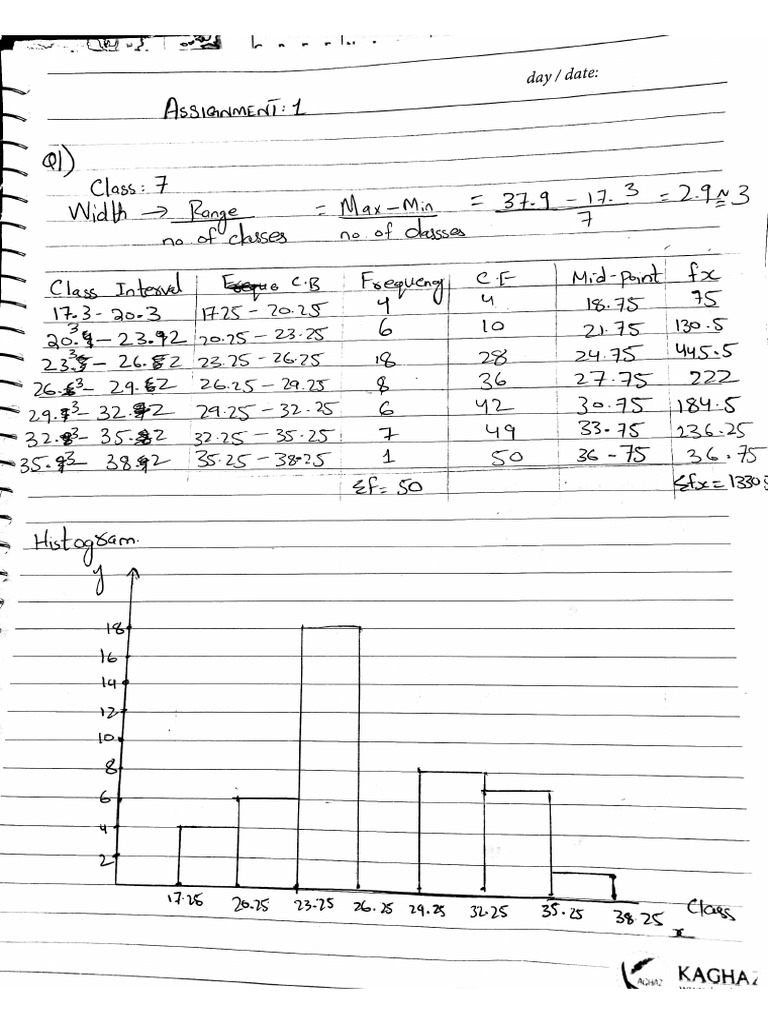 day / date:
ASSIGNMENT: 1
Q1)
Class: 7
Width → Range / no of classes = Max - Min / no of classes = 37.9 - 17.3 / 7 = 2.9 ≈ 3
Class Interval C.B Frequency C.F Mid-point fx
17.3 - 20.3 17.25 - 20.25 4 4 18.75 75
20.3 - 23.2 20.25 - 23.25 6 10 21.75 130.5
23.3 - 26.2 23.25 - 26.25 18 28 24.75 445.5
26.3 - 29.2 26.25 - 29.25 8 36 27.75 222
29.3 - 32.2 29.25 - 32.25 6 42 30.75 184.5
32.3 - 35.2 32.25 - 35.25 7 49 33.75 236.25
35.3 - 38.2 35.25 - 38.25 1 50 36-75 36.75
Σf = 50 Σfx = 1330
Histogram.
y
18
16
14
12
10
8
6
4
2
17.25 20.25 23.25 26.25 29.25 32.25 35.25 38.25 Class
x
KAGHAZ KAGHAZ